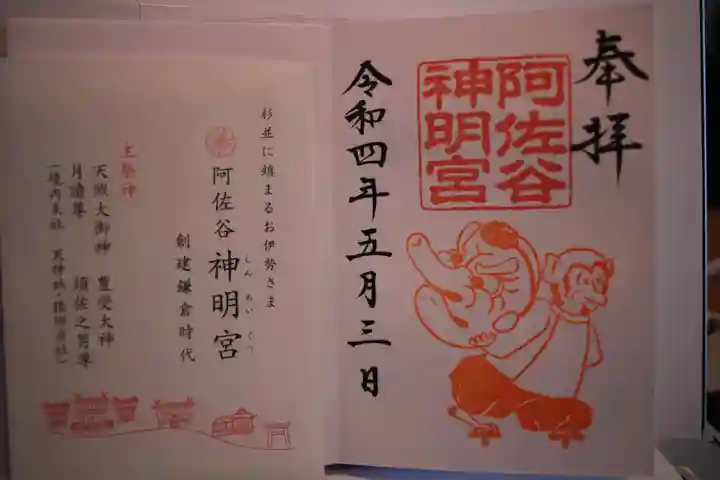 奉拝
阿佐谷
神明宮
令和四年五月三日
杉並に鎮まるお伊勢さま
阿佐谷神明宮
しんめいぐう
創建鎌倉時代
主祭神
天照大御神 豊受大神
月読尊 須佐之男尊
(境内末社 天神社・猿田彦社)